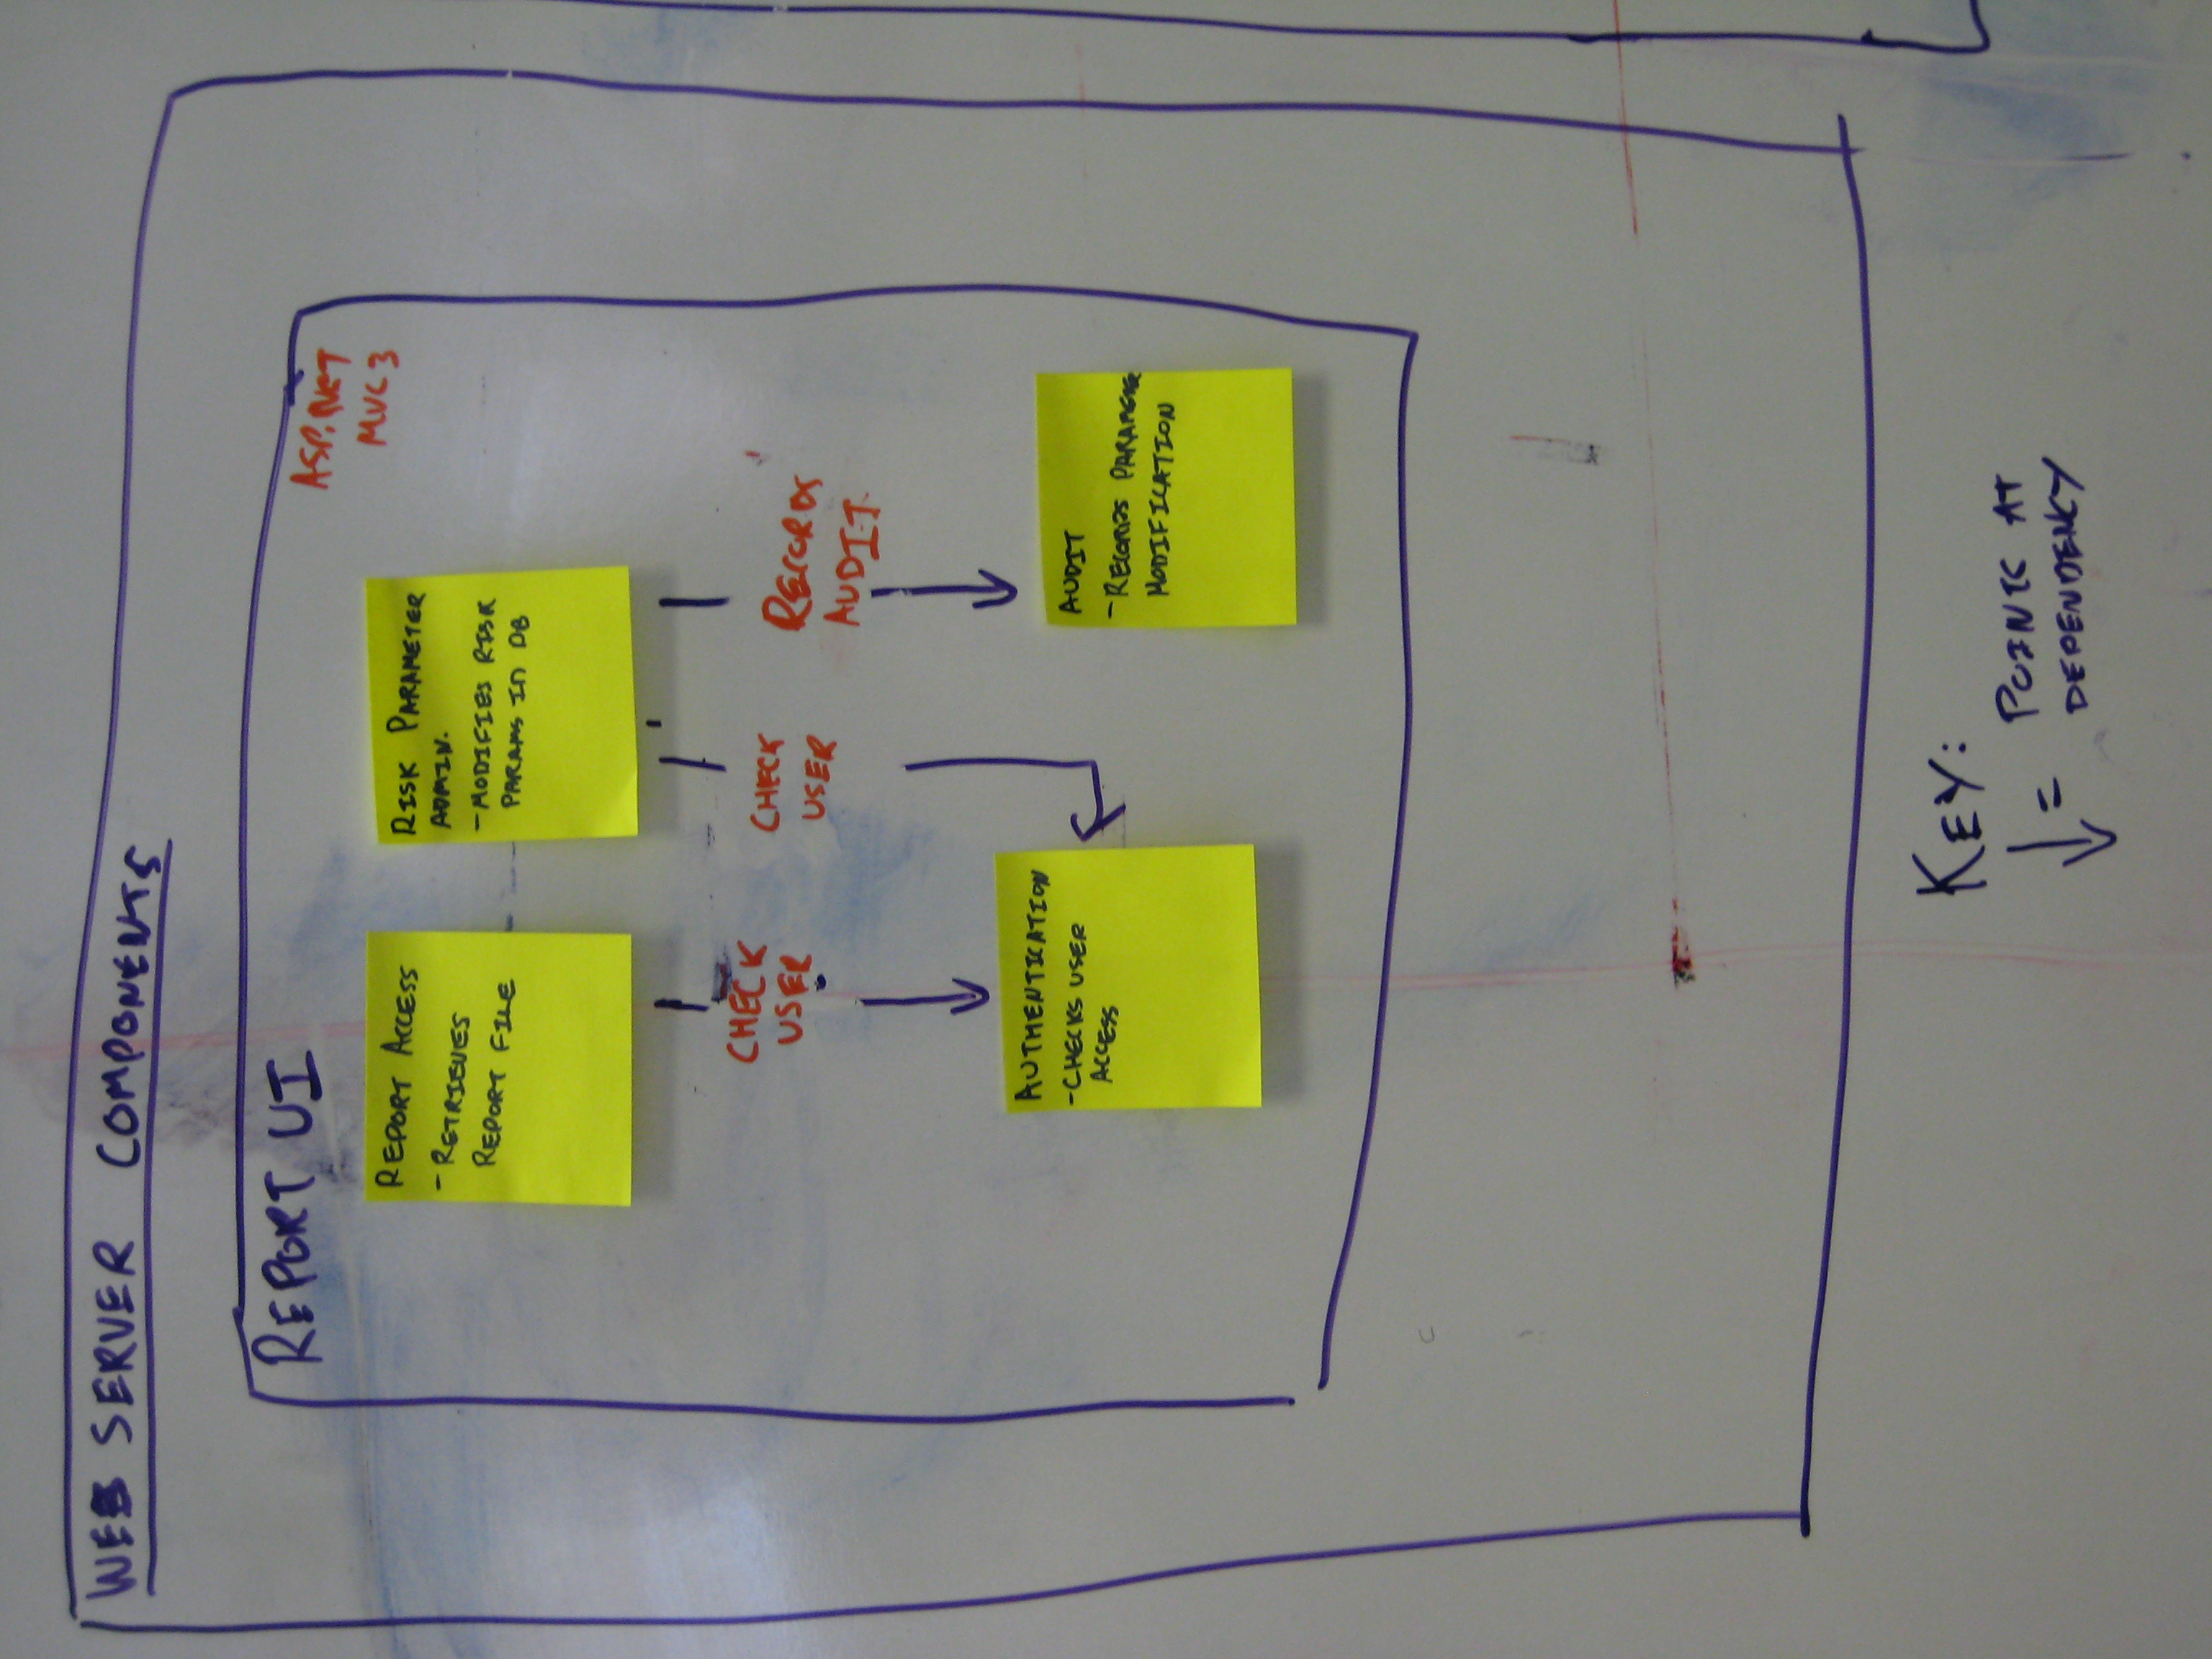 WEB SERVER COMPONENTS
REPORT UI
ASP.NET
MVC 3
REPORT ACCESS
- RETRIEVES
REPORT FILE
RISK PARAMETER
ADMIN.
- MODIFIES RISK
PARAMS IN DB
CHECK
USER
CHECK
USER
RECORDS
AUDIT
AUTHENTICATION
- CHECKS USER
ACCESS
AUDIT
- RECORDS PARAMETER
MODIFICATION
KEY:
↓ = POINTS AT
DEPENDENCY